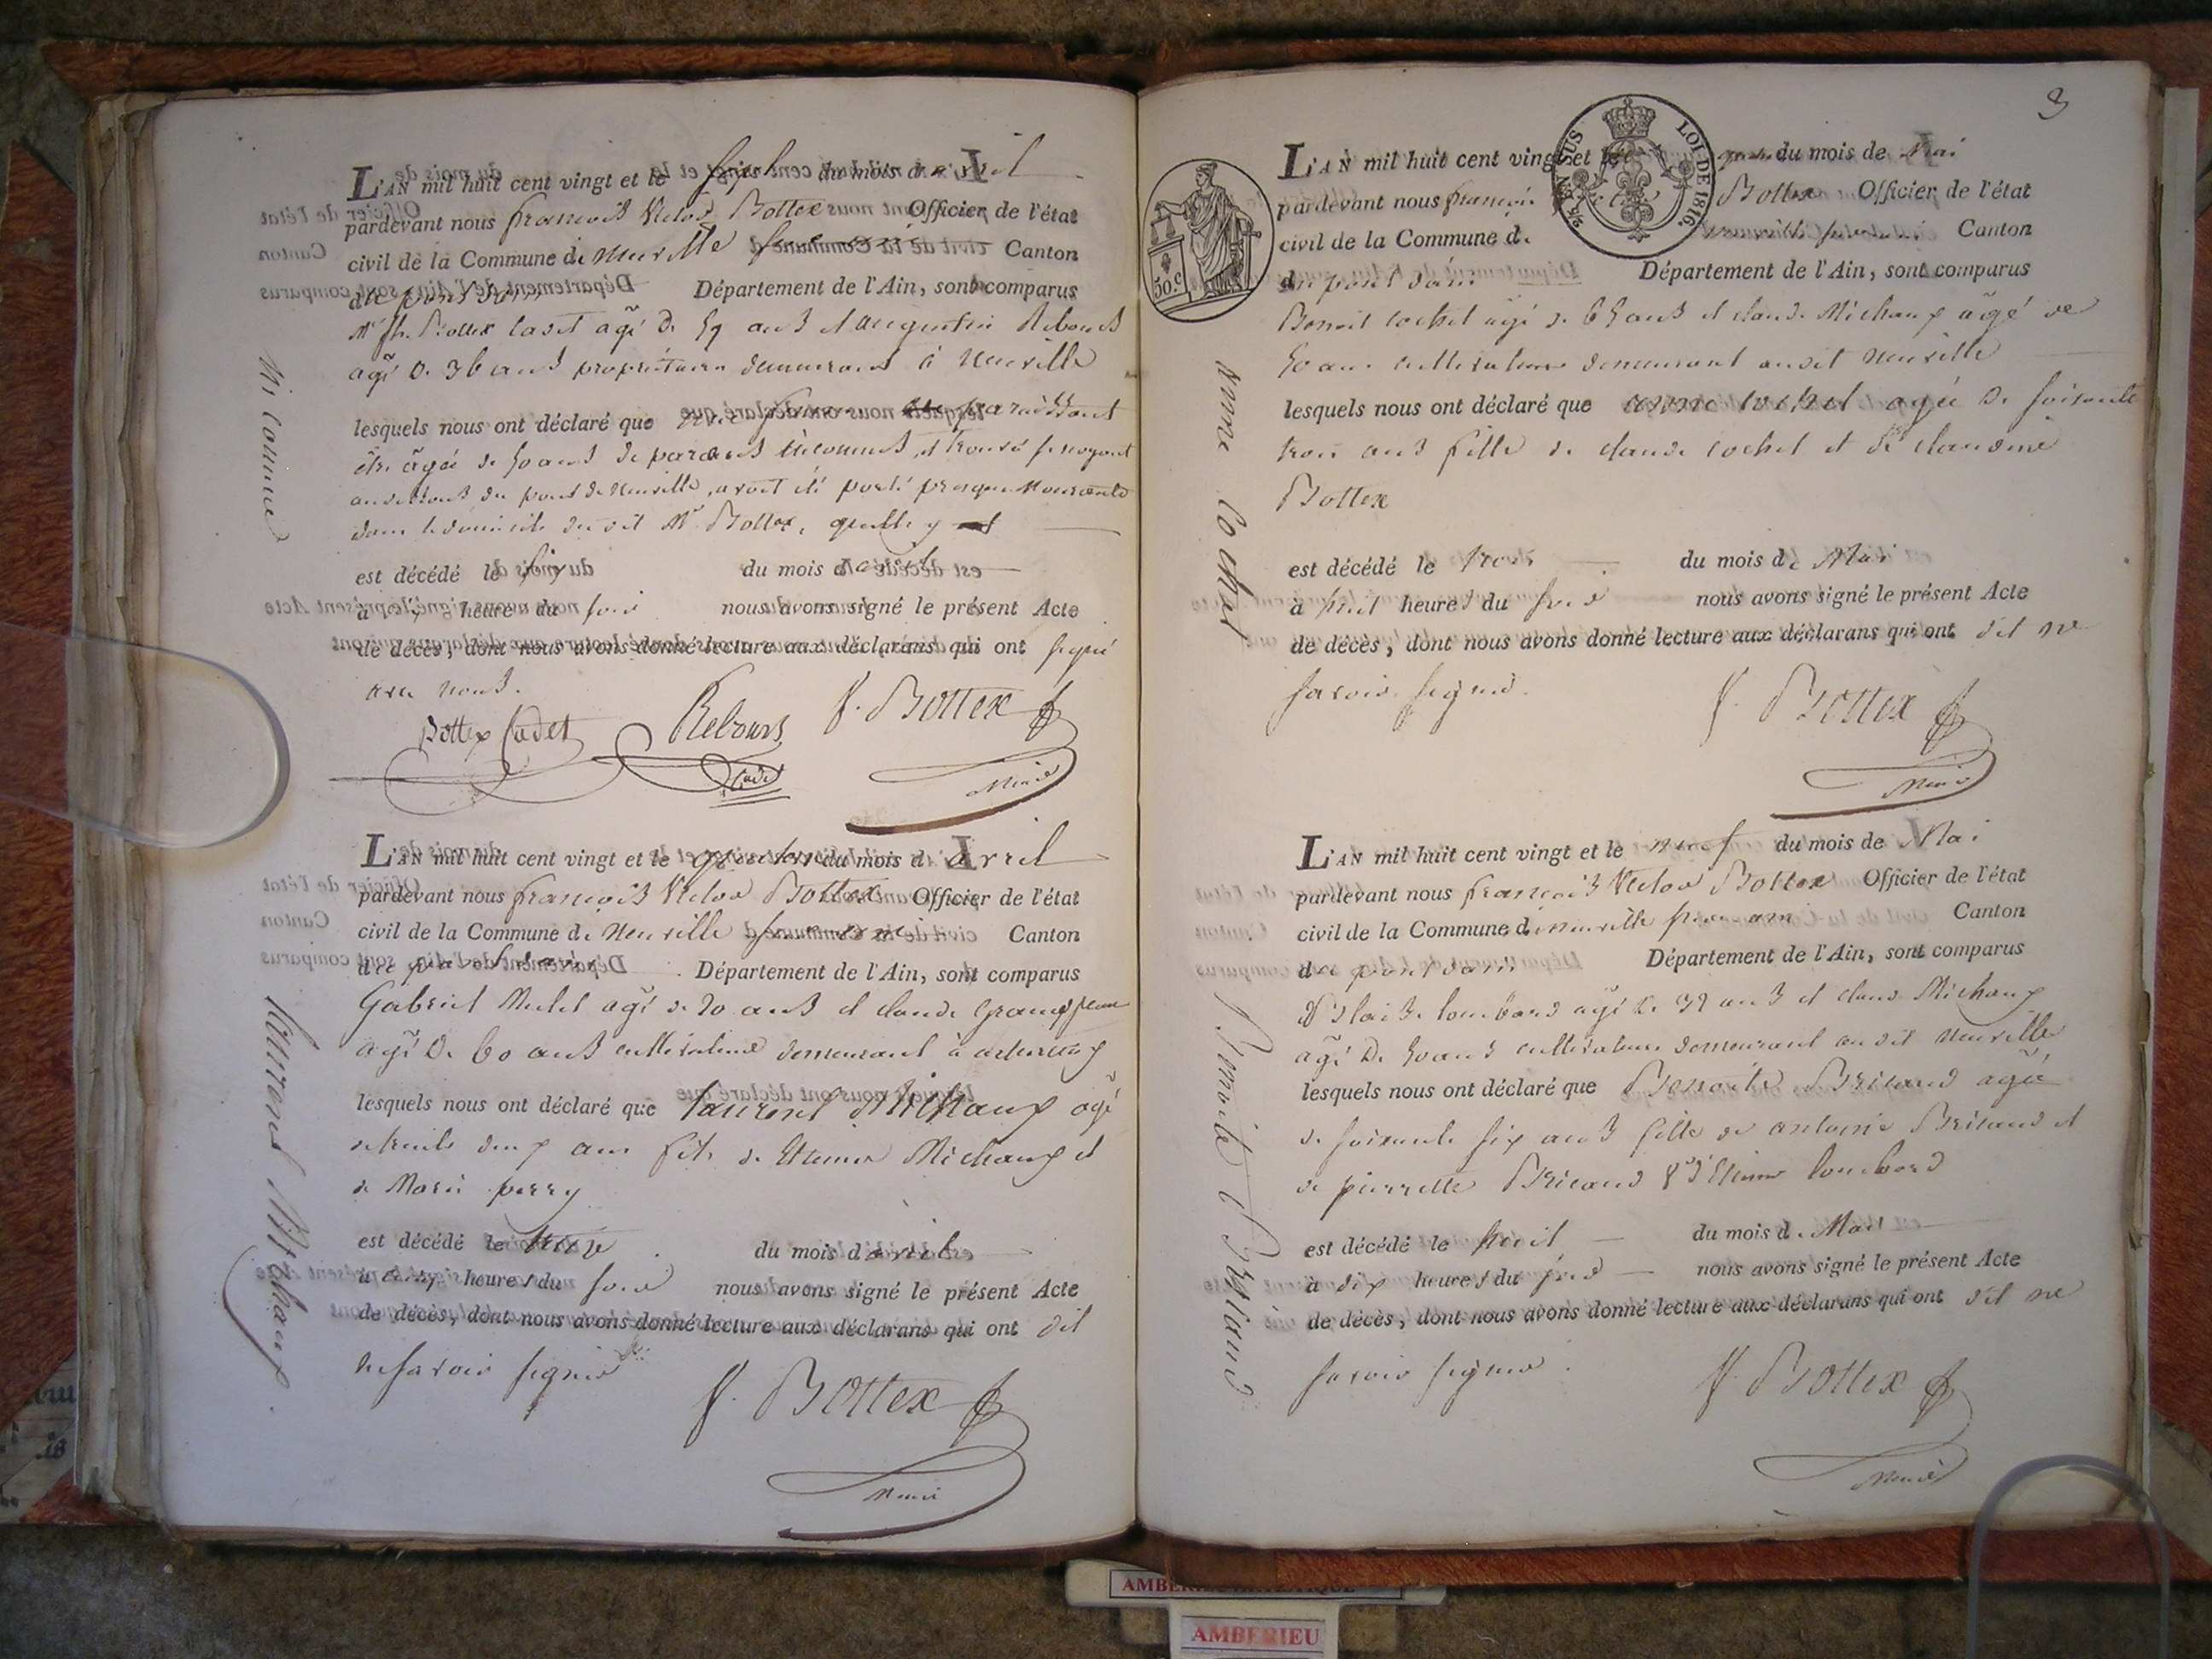 L'AN mil huit cent vingt et le sept du mois d'avril
pardevant nous françois Victor Bottex Officier de l'état
civil de la Commune de neuville sur ain Canton
du pont d'ain Département de l'Ain, sont comparus
Bottex cadet agé de 59 ans et augustin Rebours
agé de 36 ans propriétaires demeurant à neuville
lesquels nous ont déclaré que une femme paraissant
être agée de 50 ans de parents inconnus, et trouvé se noyant
au dessous du pont de neuville, avoit été porté presque mourante
dans le domicile du dit Mr Bottex, quelle y est
est décédé le six du mois d'avril
à heure du soir nous avons signé le présent Acte
de décès, dont nous avons donné lecture aux déclarans qui ont signé
avec nous.
Bottex Cadet Rebours F. Bottex
Cadet Maire
inconnue
L'AN mil huit cent vingt et le quatorze du mois d'Avril
pardevant nous françois Victor Bottex Officier de l'état
civil de la Commune de neuville sur ain Canton
du pont d'ain Département de l'Ain, sont comparus
Gabriel Mulet agé de 20 ans et claude
agé de 60 ans cultivateurs demeurant à
lesquels nous ont déclaré que laurent Michaux agé
de trente deux ans fils de Etienne Michaux et
de Marie perry
est décédé le treize du mois d'avril
à heures du soir nous avons signé le présent Acte
de décès, dont nous avons donné lecture aux déclarans qui ont dit
ne savoir signer
F. Bottex
Maire
Laurent Michaux
3
50.c
LOI DE 1816.
L'AN mil huit cent vingt et le du mois de Mai
pardevant nous françois Bottex Officier de l'état
civil de la Commune de Canton
du pont d'ain Département de l'Ain, sont comparus
Benoit cochet agé de 65 ans et claude Michaux agé de
50 ans cultivateurs demeurant audit neuville
lesquels nous ont déclaré que anne cochet agée de soixante
trois ans fille de claude cochet et de claudine
Bottex
est décédé le trois du mois de Mai
à huit heures du soir nous avons signé le présent Acte
de décès, dont nous avons donné lecture aux déclarans qui ont dit ne
savoir signer.
F. Bottex
Maire
anne Cochet
L'AN mil huit cent vingt et le neuf du mois de Mai
pardevant nous françois Victor Bottex Officier de l'état
civil de la Commune de neuville sur ain Canton
du pont d'ain Département de l'Ain, sont comparus
Blaise lombard agé de 32 ans et claude Michaux
agé de 50 ans cultivateurs demeurant au dit neuville
lesquels nous ont déclaré que Benoite Bricaud agée
de soixante six ans fille de antoine Bricaud et
de pierrette Bricaud Ve d'Etienne lombard
est décédé le huit du mois de Mai
à dix heures du soir nous avons signé le présent Acte
de décès, dont nous avons donné lecture aux déclarans qui ont dit ne
savoir signer.
F. Bottex
Maire
Benoite Bricaud
AMBERIEU